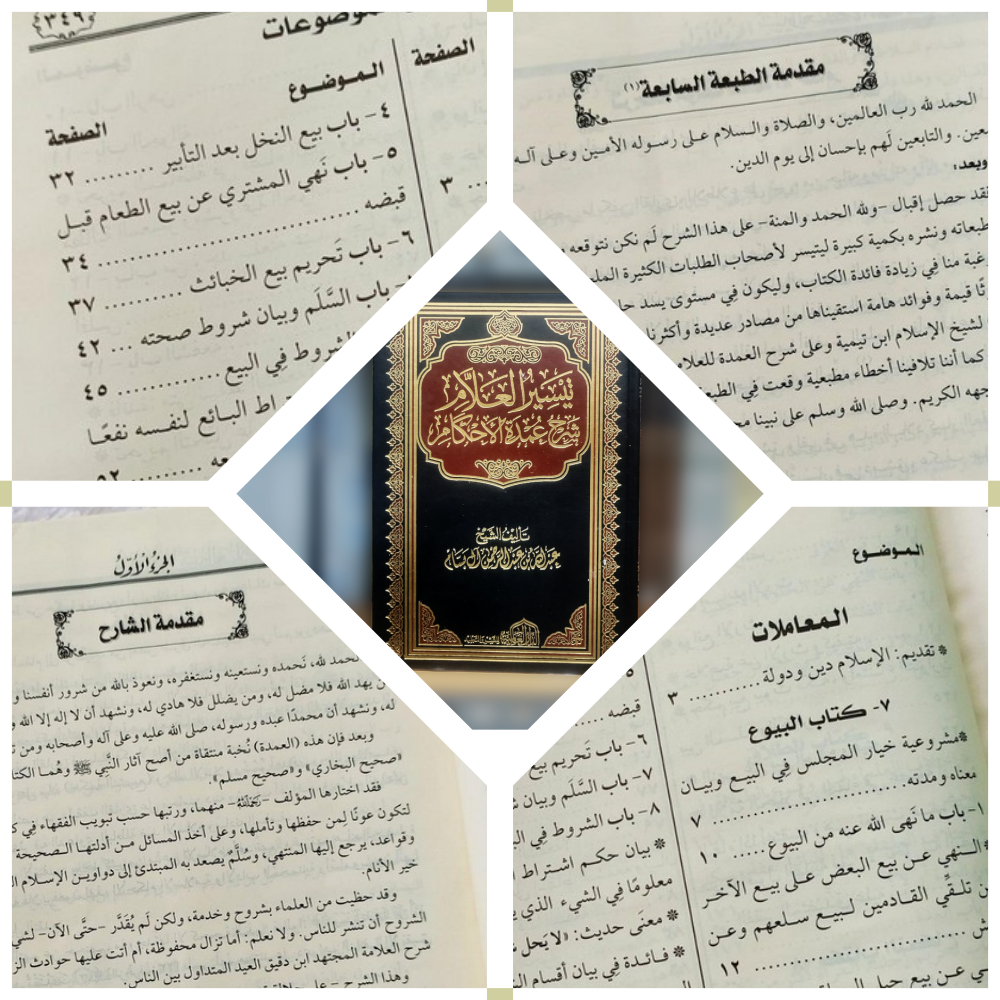 ٣٤٩
الموضوعات
الصفحة
الـموضــوع
الصفحة
٤- باب بيع النخل بعد التأبير ......... ٣٢
٥- باب نَهي المشتري عن بيع الطعام قبـل
قبضه .................................... ٣٤
٣
٦- باب تَحريم بيع الخبائث ........... ٣٧
باب السَّلَم وبيان شروط صحته ... ٤٢
الشروط فِي البيع ............... ٤٥
البائع لنفـسه نفعًـا
٥٢
مقدمة الطبعة السابعة(١)
الحمد لله رب العالمين، والصلاة والـسلام علـى رسـوله الأمـين وعلـى آلـه
والتابعين لَهم بإحسان إلى يوم الدين.
وبعد،
فقد حصل إقبال -ولله الحمد والمنة- على هذا الشرح لَم نكن نتوقعه
ونشره بكمية كبيرة ليتيسر لأصحاب الطلبات الكثيرة
منا فِي زيادة فائدة الكتاب، وليكون فِي مستوى يسد
قيمة وفوائد هامة استقيناها من مصادر عديدة
لشيخ الإسلام ابن تيمية وعلى شرح العمدة
كما أننا تلافينا أخطاء مطبعية وقعت فِي
الكريم. وصلى الله وسلم على نبينا
تيسير العلام
شرح عمدة الأحكام
تأليف الشيخ
عبد الله بن عبد الرحمن آل بسام
الجزء الأول
مقدمة الشارح
الحمد لله، نَحمده ونستعينه ونستغفره، ونعوذ بالله من شرور أنفسنا
يهد الله فلا مضل له، ومن يضلل فلا هادي له، ونشهد أن لا إله إلا الله
له، ونشهد أن محمدًا عبده ورسوله، صلى الله عليه وعلى آله وأصحابه ومن
وبعد فإن هذه (العمدة) نُخبة منتقاة من أصح آثار النَّبي ﷺ وهُمـا
«صحيح البخاري» و«صحيح مسلم».
فقد اختارها المؤلف -رَحِمَهُ اللهُ- منهما، ورتبها حسب تبويب الفقهاء فِي
لتكون عونًا لِمن حفظها وتأملها، وعلى أخذ المسائل مـن أدلتهـا الـصحيحة
وقواعد، يرجع إليها المنتهي، وسُلَّمٌ يصعد به المبتدئ إلى دواويـن الإسـلام
خير الأنام.
وقد حظيت من العلماء بشروح وخدمة، ولكن لَم يُقَدَّر -حتَّى الآن-
الشروح أن تنشر للناس. ولا نعلم: أما تزال محفوظة، أم أتت عليها حوادث
شرح العلامة المجتهد ابن دقيق العيد المتداول بين الناس.
وهذا الشرح
الـموضــوع
المعاملات
* تقديم: الإسلام دين ودولة ........... ٣
٧- كتاب البيوع
* مشروعية خيار المجلس فِي البيـع وبيـان
معناه ومدته ........................... ٧
١- باب ما نَهى الله عنه من البيوع ..... ١٠
* الـنهي عـن بيع البعض علـى بيـع الآخـر
تلقِّي القـادمين لبيـع سـلعهم وعـن
١٢
عـن بيع
٥
قبضه
٦- باب تَحريم بيع
٧- باب السَّلَم وبيان
٨- باب الشروط فِي
* بيان حكـم اشـتراط
معلومًا فِي الشيء الذي
* معنَى حديث: «لا يَحل
* فـائـدة فـي بيان أقسام